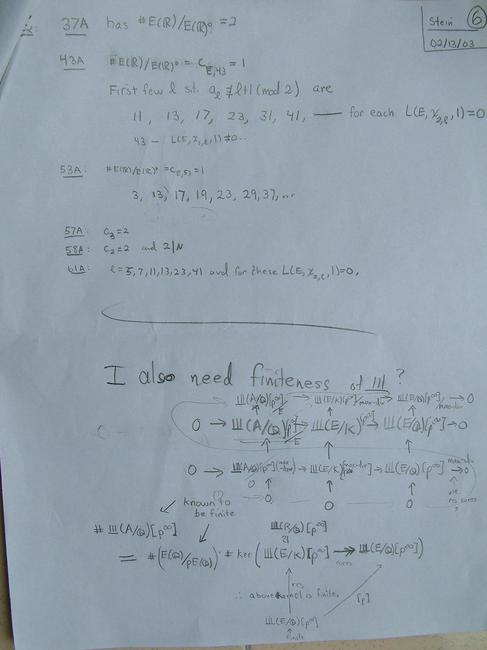 Stein 6
02/13/03
37A has #E(ℝ)/E(ℝ)⁰ = 2
43A #E(ℝ)/E(ℝ)⁰ = C_{E,43} = 1
First few l s.t. a_l ≢ l+1 (mod 2) are
11, 13, 17, 23, 31, 41, — for each L(E, χ_{2,l}, 1) = 0
43 – L(E, χ_{2,l}, 1) ≠ 0...
53A: #E(ℝ)/E(ℝ)⁰ = C_{E,53} = 1
3, 13, 17, 19, 23, 29, 37, ...
57A: C₃ = 2
58A: C₂ = 2 and 2|N
61A: l = 5, 7, 11, 13, 23, 41 and for these L(E, χ_{2,l}, 1) = 0,
I also need finiteness of Ш?
Ш(A/Q)[p^∞] → Ш(E/K)[p^∞]/max-div → Ш(E/Q)[p^∞]/max-div → 0
0 → Ш(A/Q)[p^∞] → Ш(E/K)[p^∞] → Ш(E/Q)[p^∞] → 0
0 → Ш(A/Q)[p^∞] → Ш(E/K)[p^∞] → Ш(E/Q)[p^∞] → 0
0 0 0
known to
be finite
#Ш(A/Q)[p^∞] Ш(R/Q)[p^∞]
= #(E(Q)/pE(Q)) · # ker (Ш(E/K)[p^∞] → Ш(E/Q)[p^∞])
cores
∴ above kernel is finite. res [p]
Ш(E/Q)[p^∞]
finite